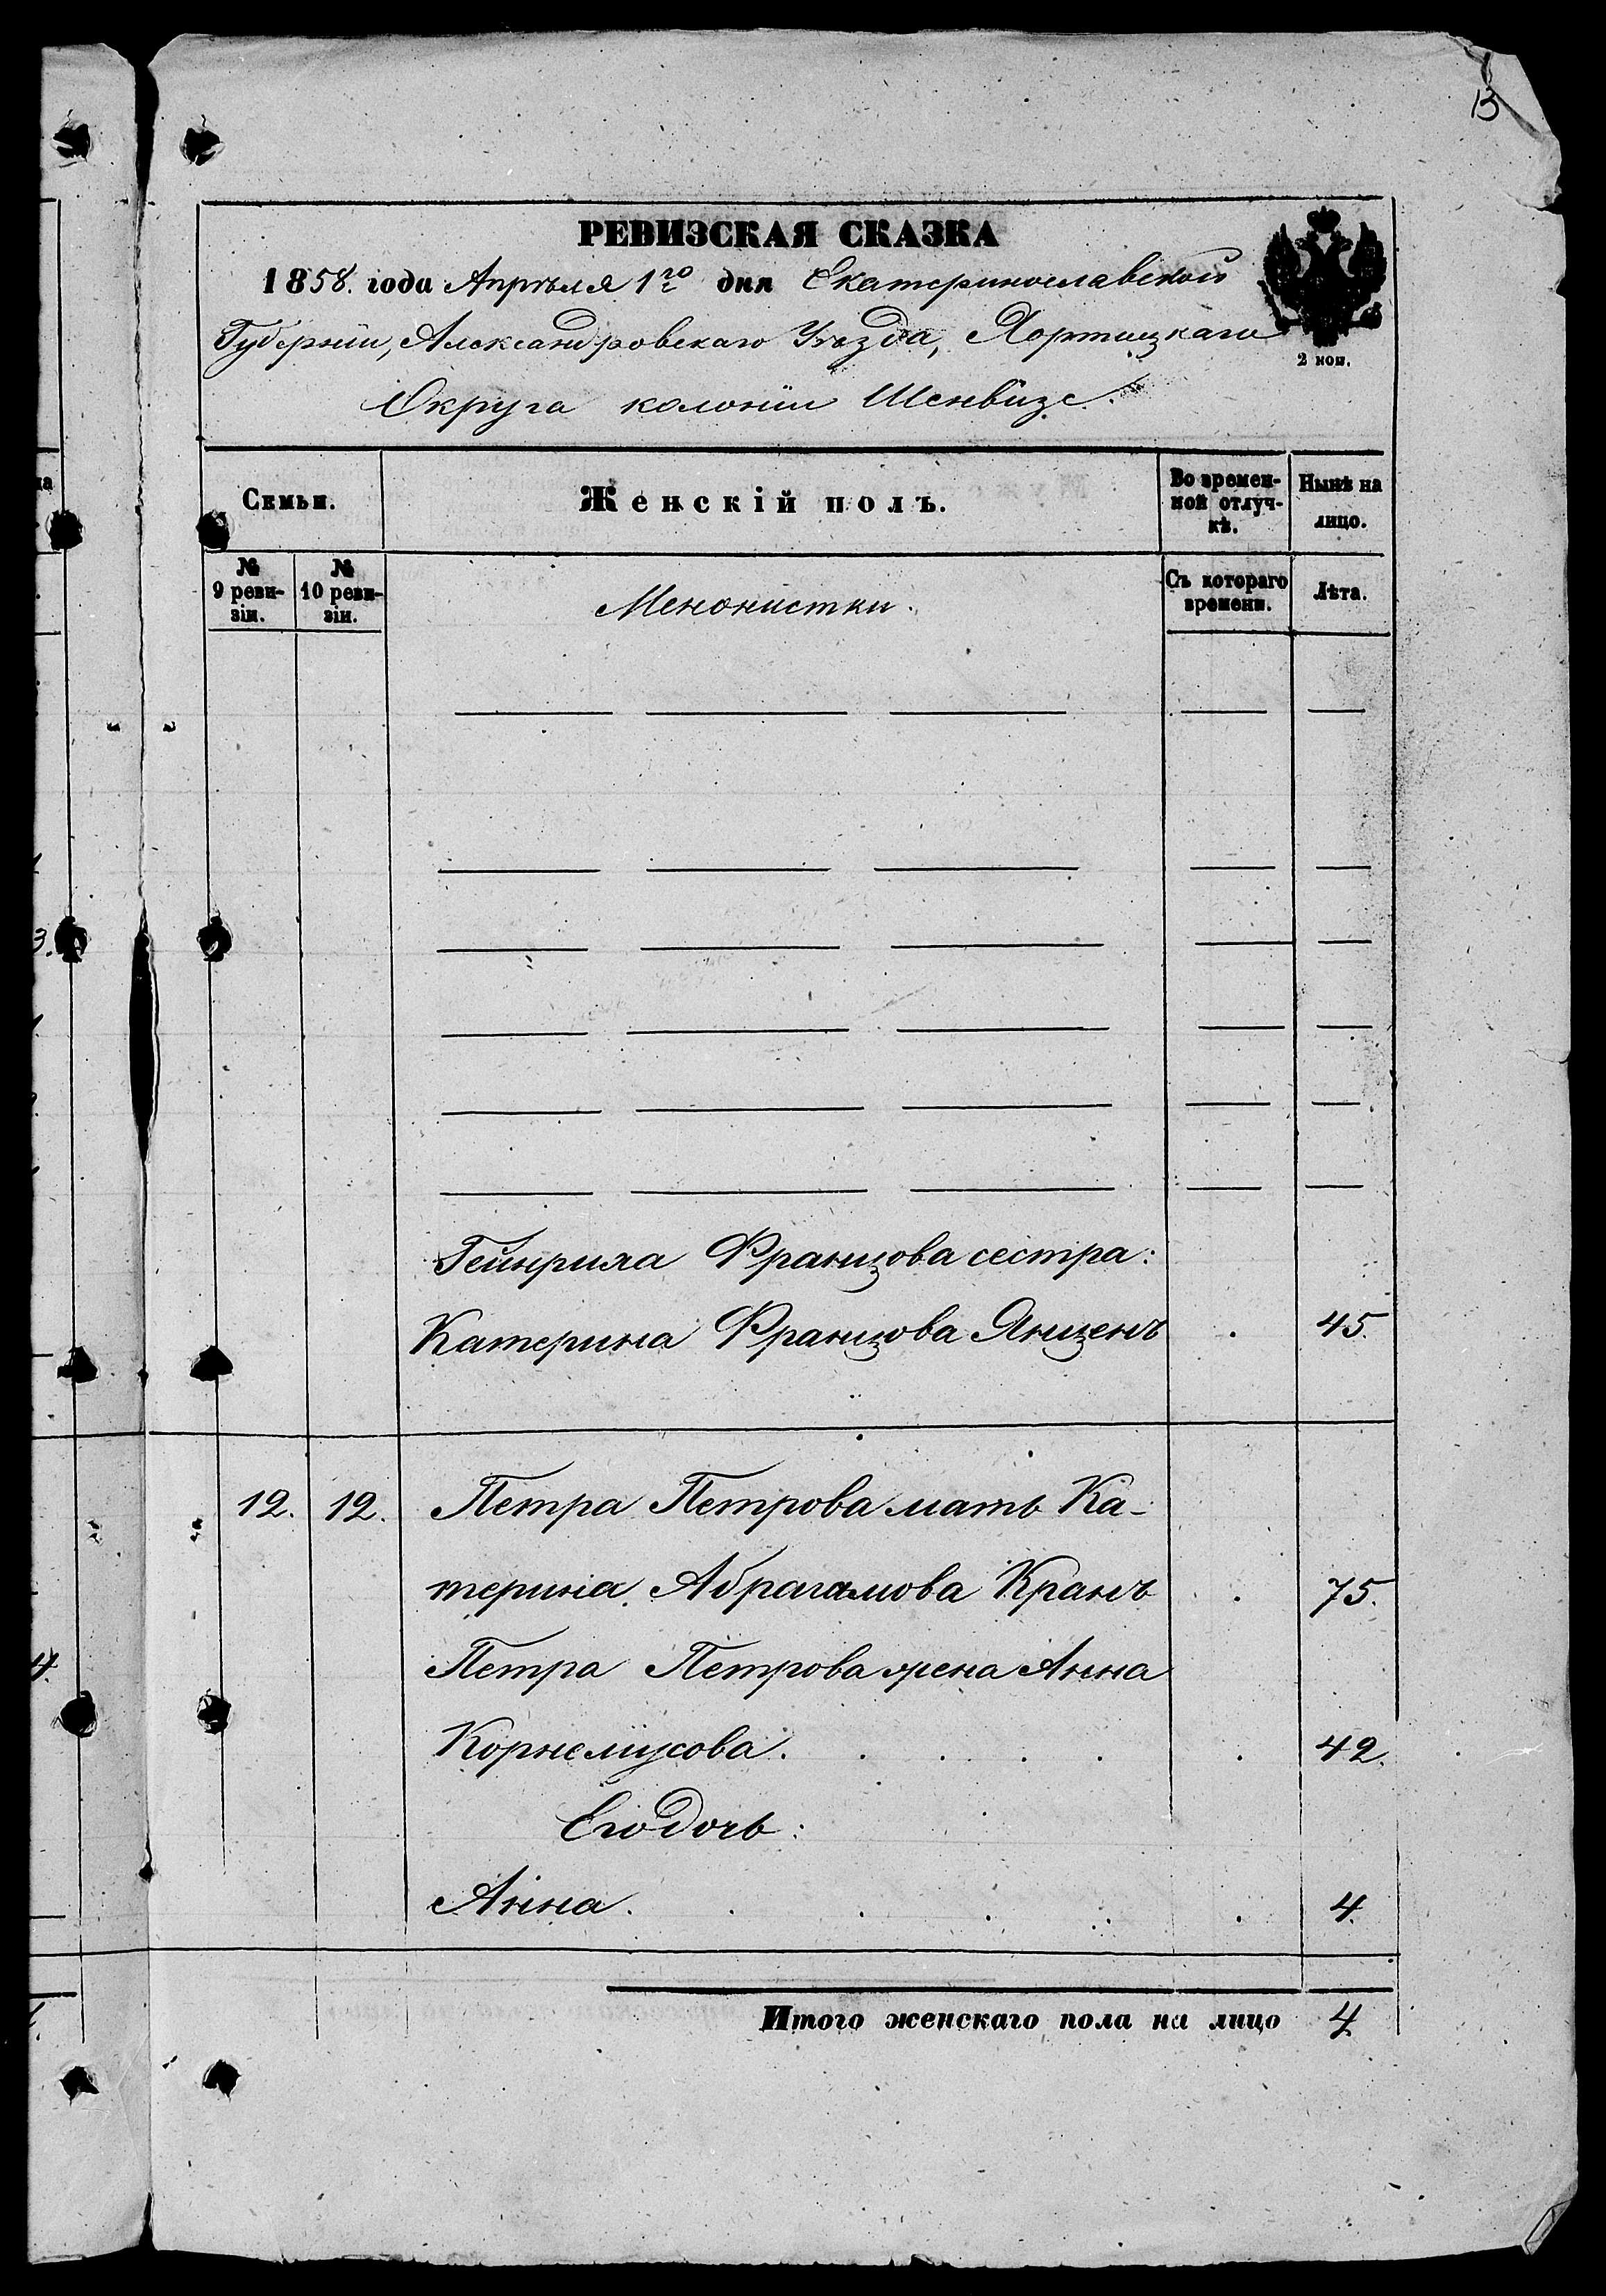 13
РЕВИЗСКАЯ СКАЗКА
1858. года Апрѣля 1го дня Екатеринославской
Губерніи, Александровскаго Уѣзда, Хортицкаго
2 коп.
Округа колоніи Шенвизе.
Семьи.
Женскій полъ.
Во времен-
ной отлуч-
кѣ.
Нынѣ на
лицо.
№
9 реви-
зіи.
№
10 реви-
зіи.
Менонистки.
Съ котораго
времени.
Лѣта.
Гейнриха Францова сестра:
Катерина Францова Янценъ 45.
12. 12. Петра Петрова мать Ка-
терина Абрагамова Кранъ 75.
Петра Петрова жена Анна
Корнелиусова. 42.
Его дочь:
Анна. 4.
Итого женскаго пола на лицо 4